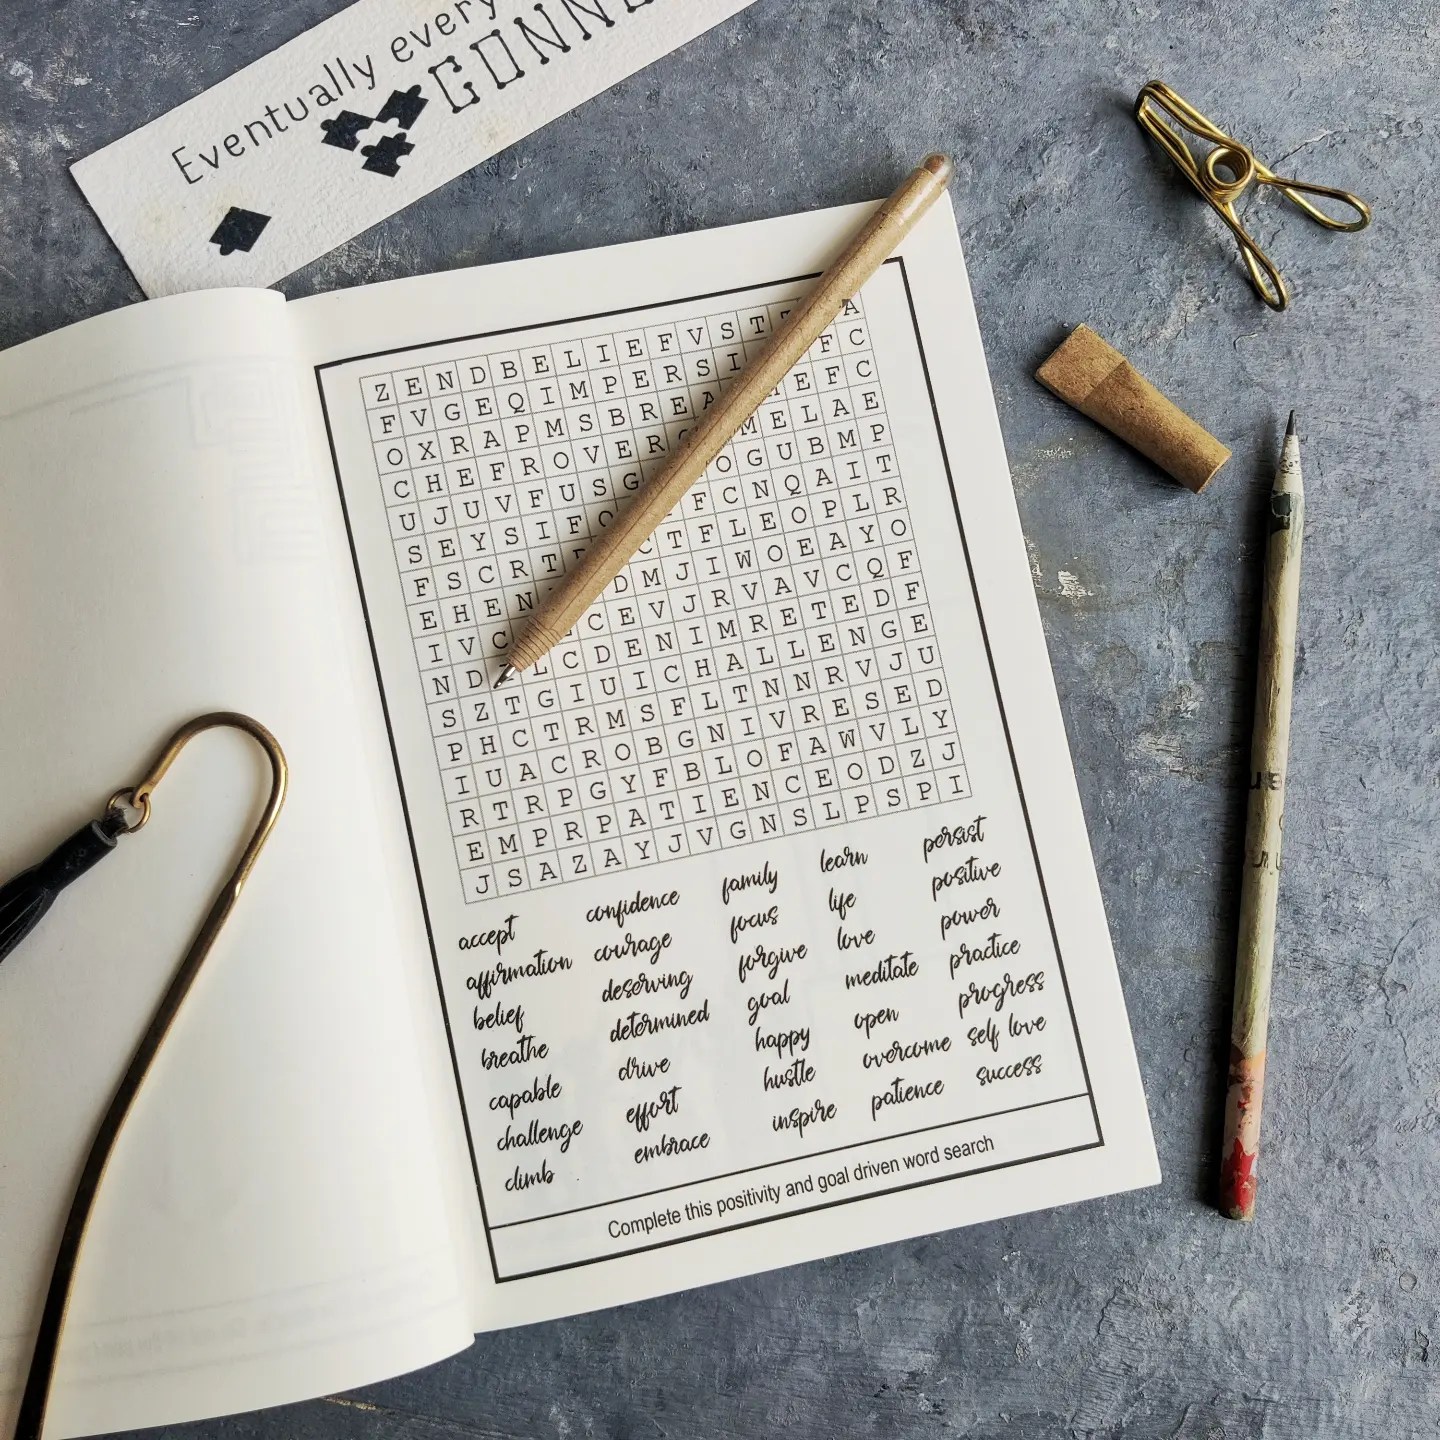 Eventually every
CONNE
Z E N D B E L I E F V S T A
F V G E Q I M P E R S I F C
O X R A P M S B R E A H E F C
C H E F R O V E R M E L A E
U J U V F U S G O G U B M P
S E Y S I F F C N Q A I T
F S C R T C T F L E O P L R
E H E N D M J I W O E A Y O
I V C C E V J R V A V C Q F
N D L C D E N I M R E T E D F
S Z T G I U I C H A L L E N G E
P H C T R M S F L T N N R V J U
I U A C R O B G N I V R E S E D
R T R P G Y F B L O F A W V L Y
E M P R P A T I E N C E O D Z J
J S A Z A Y J V G N S L P S P I
accept
affirmation
belief
breathe
capable
challenge
climb
confidence
courage
deserving
determined
drive
effort
embrace
family
focus
forgive
goal
happy
hustle
inspire
learn
life
love
meditate
open
overcome
patience
persist
positive
power
practice
progress
self love
success
Complete this positivity and goal driven word search